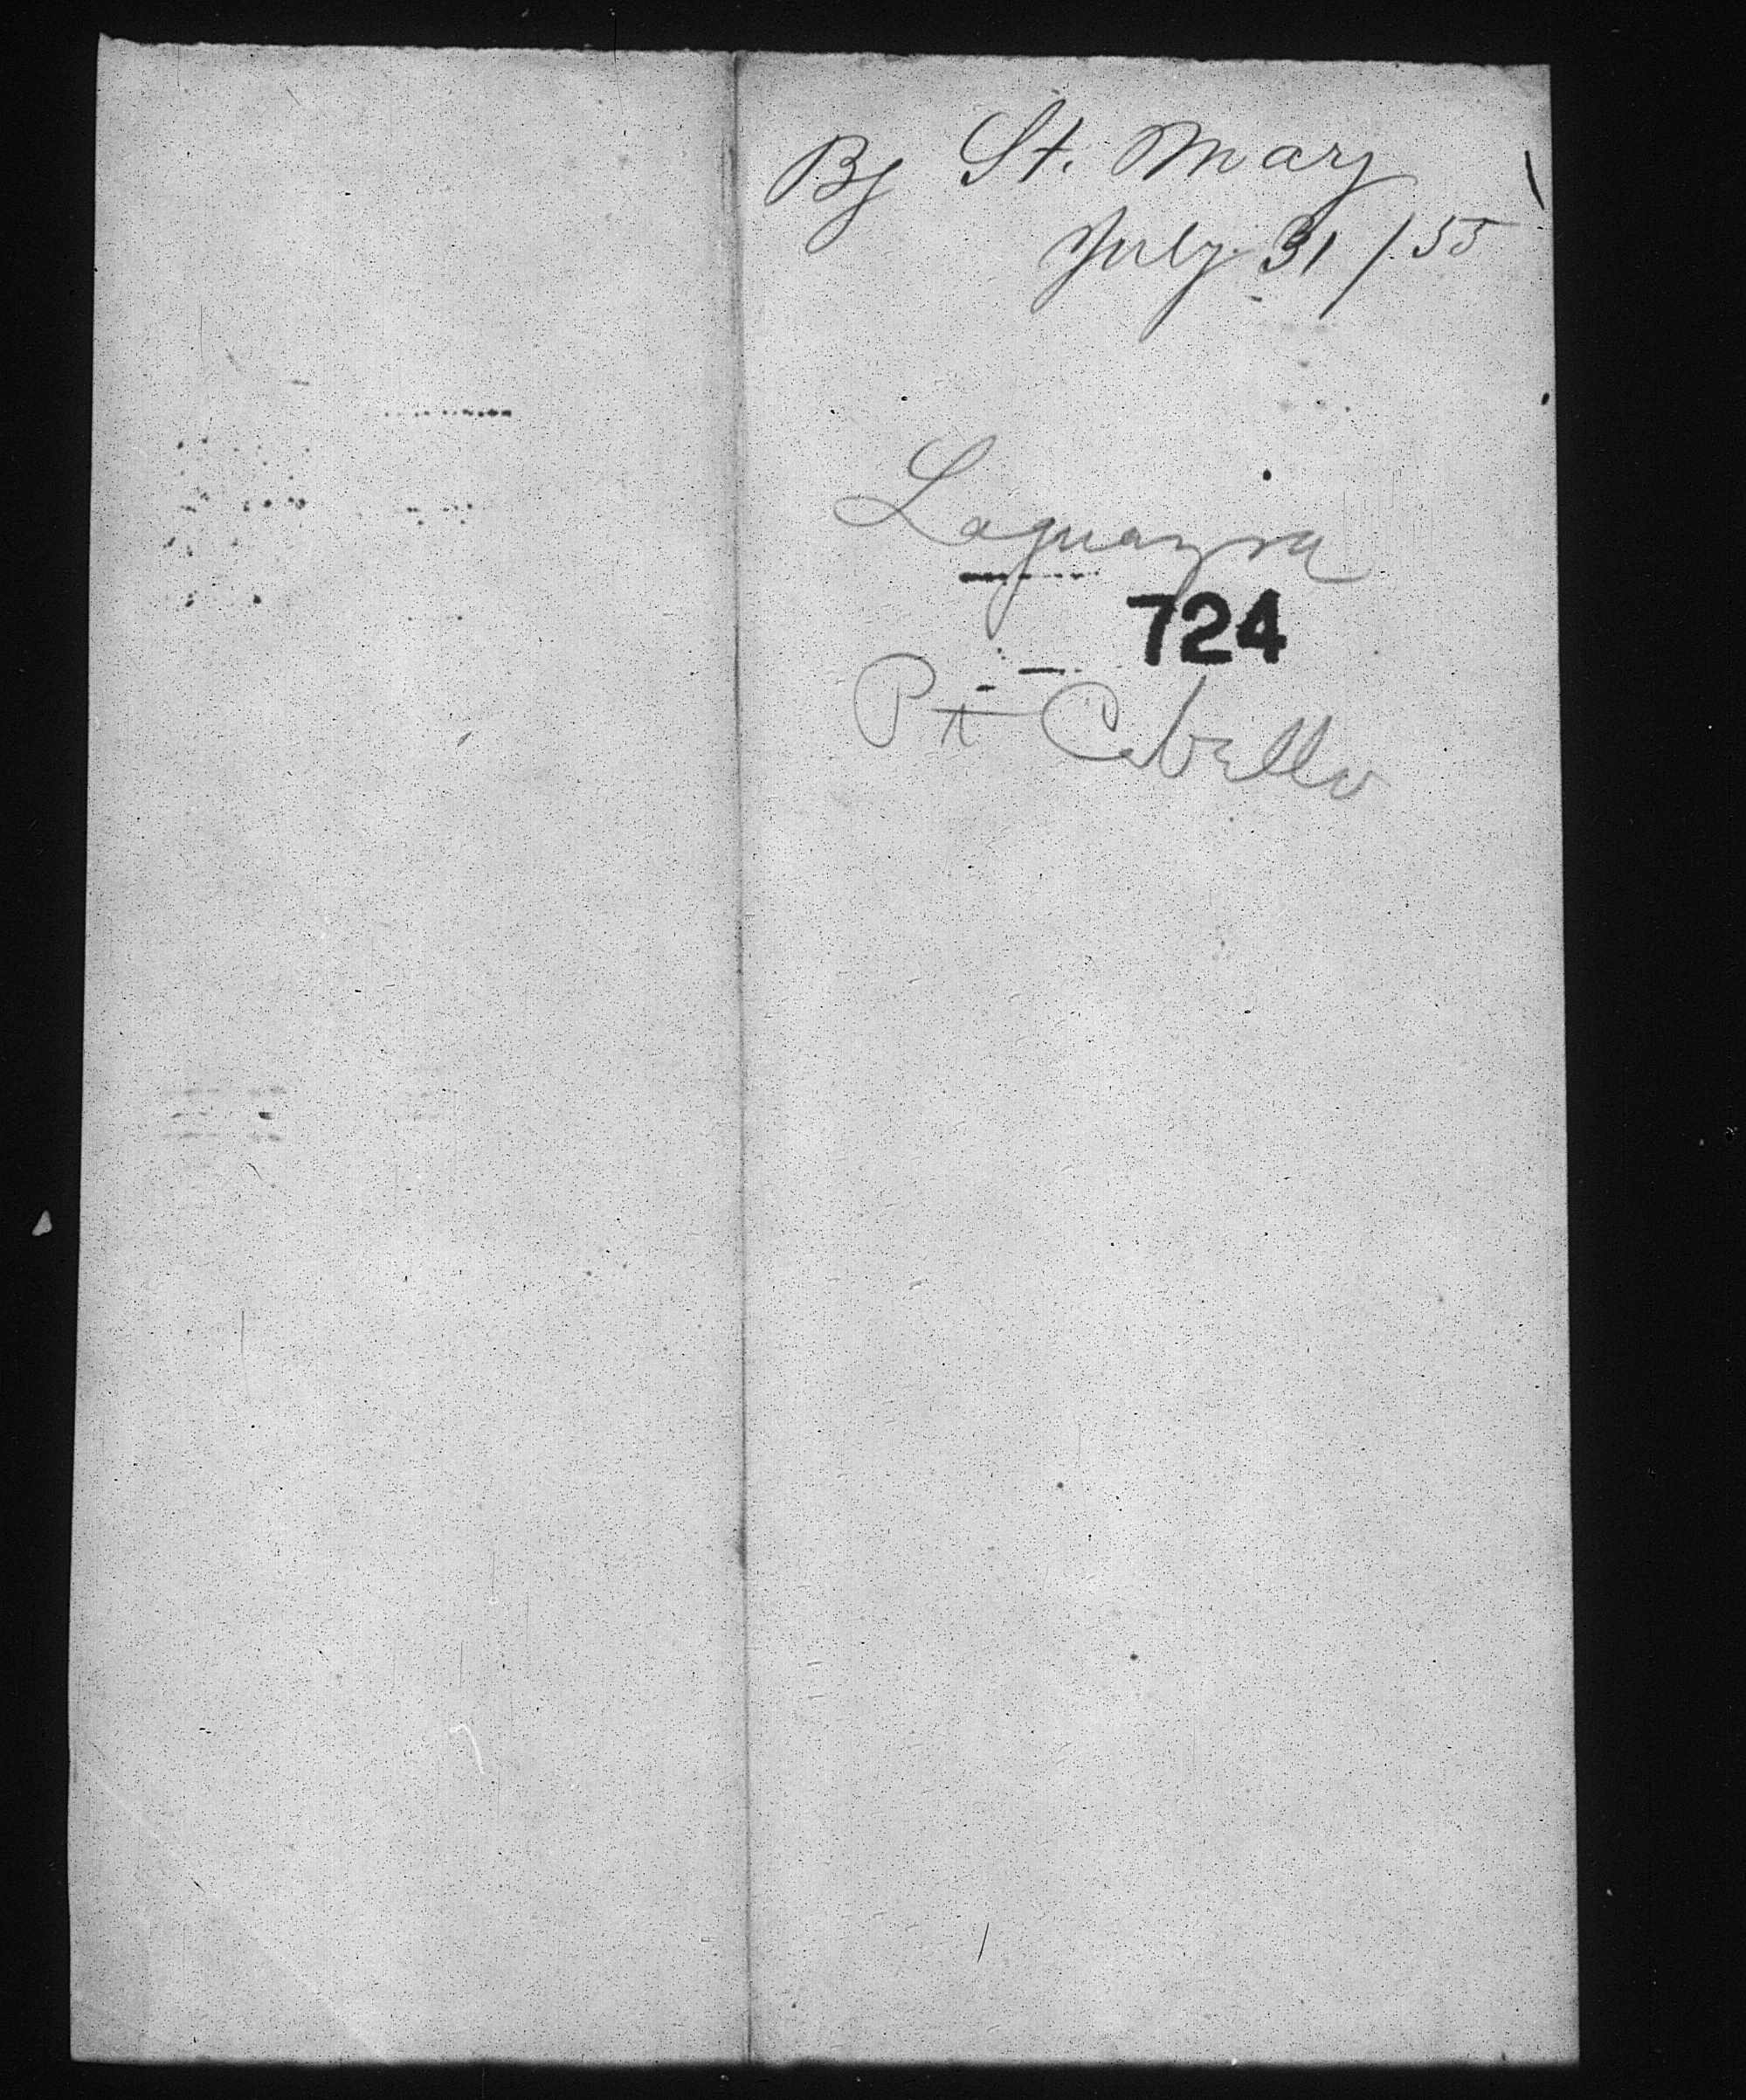 By St. Mary
July 31/55
Laguayra
724
Pt Cabello